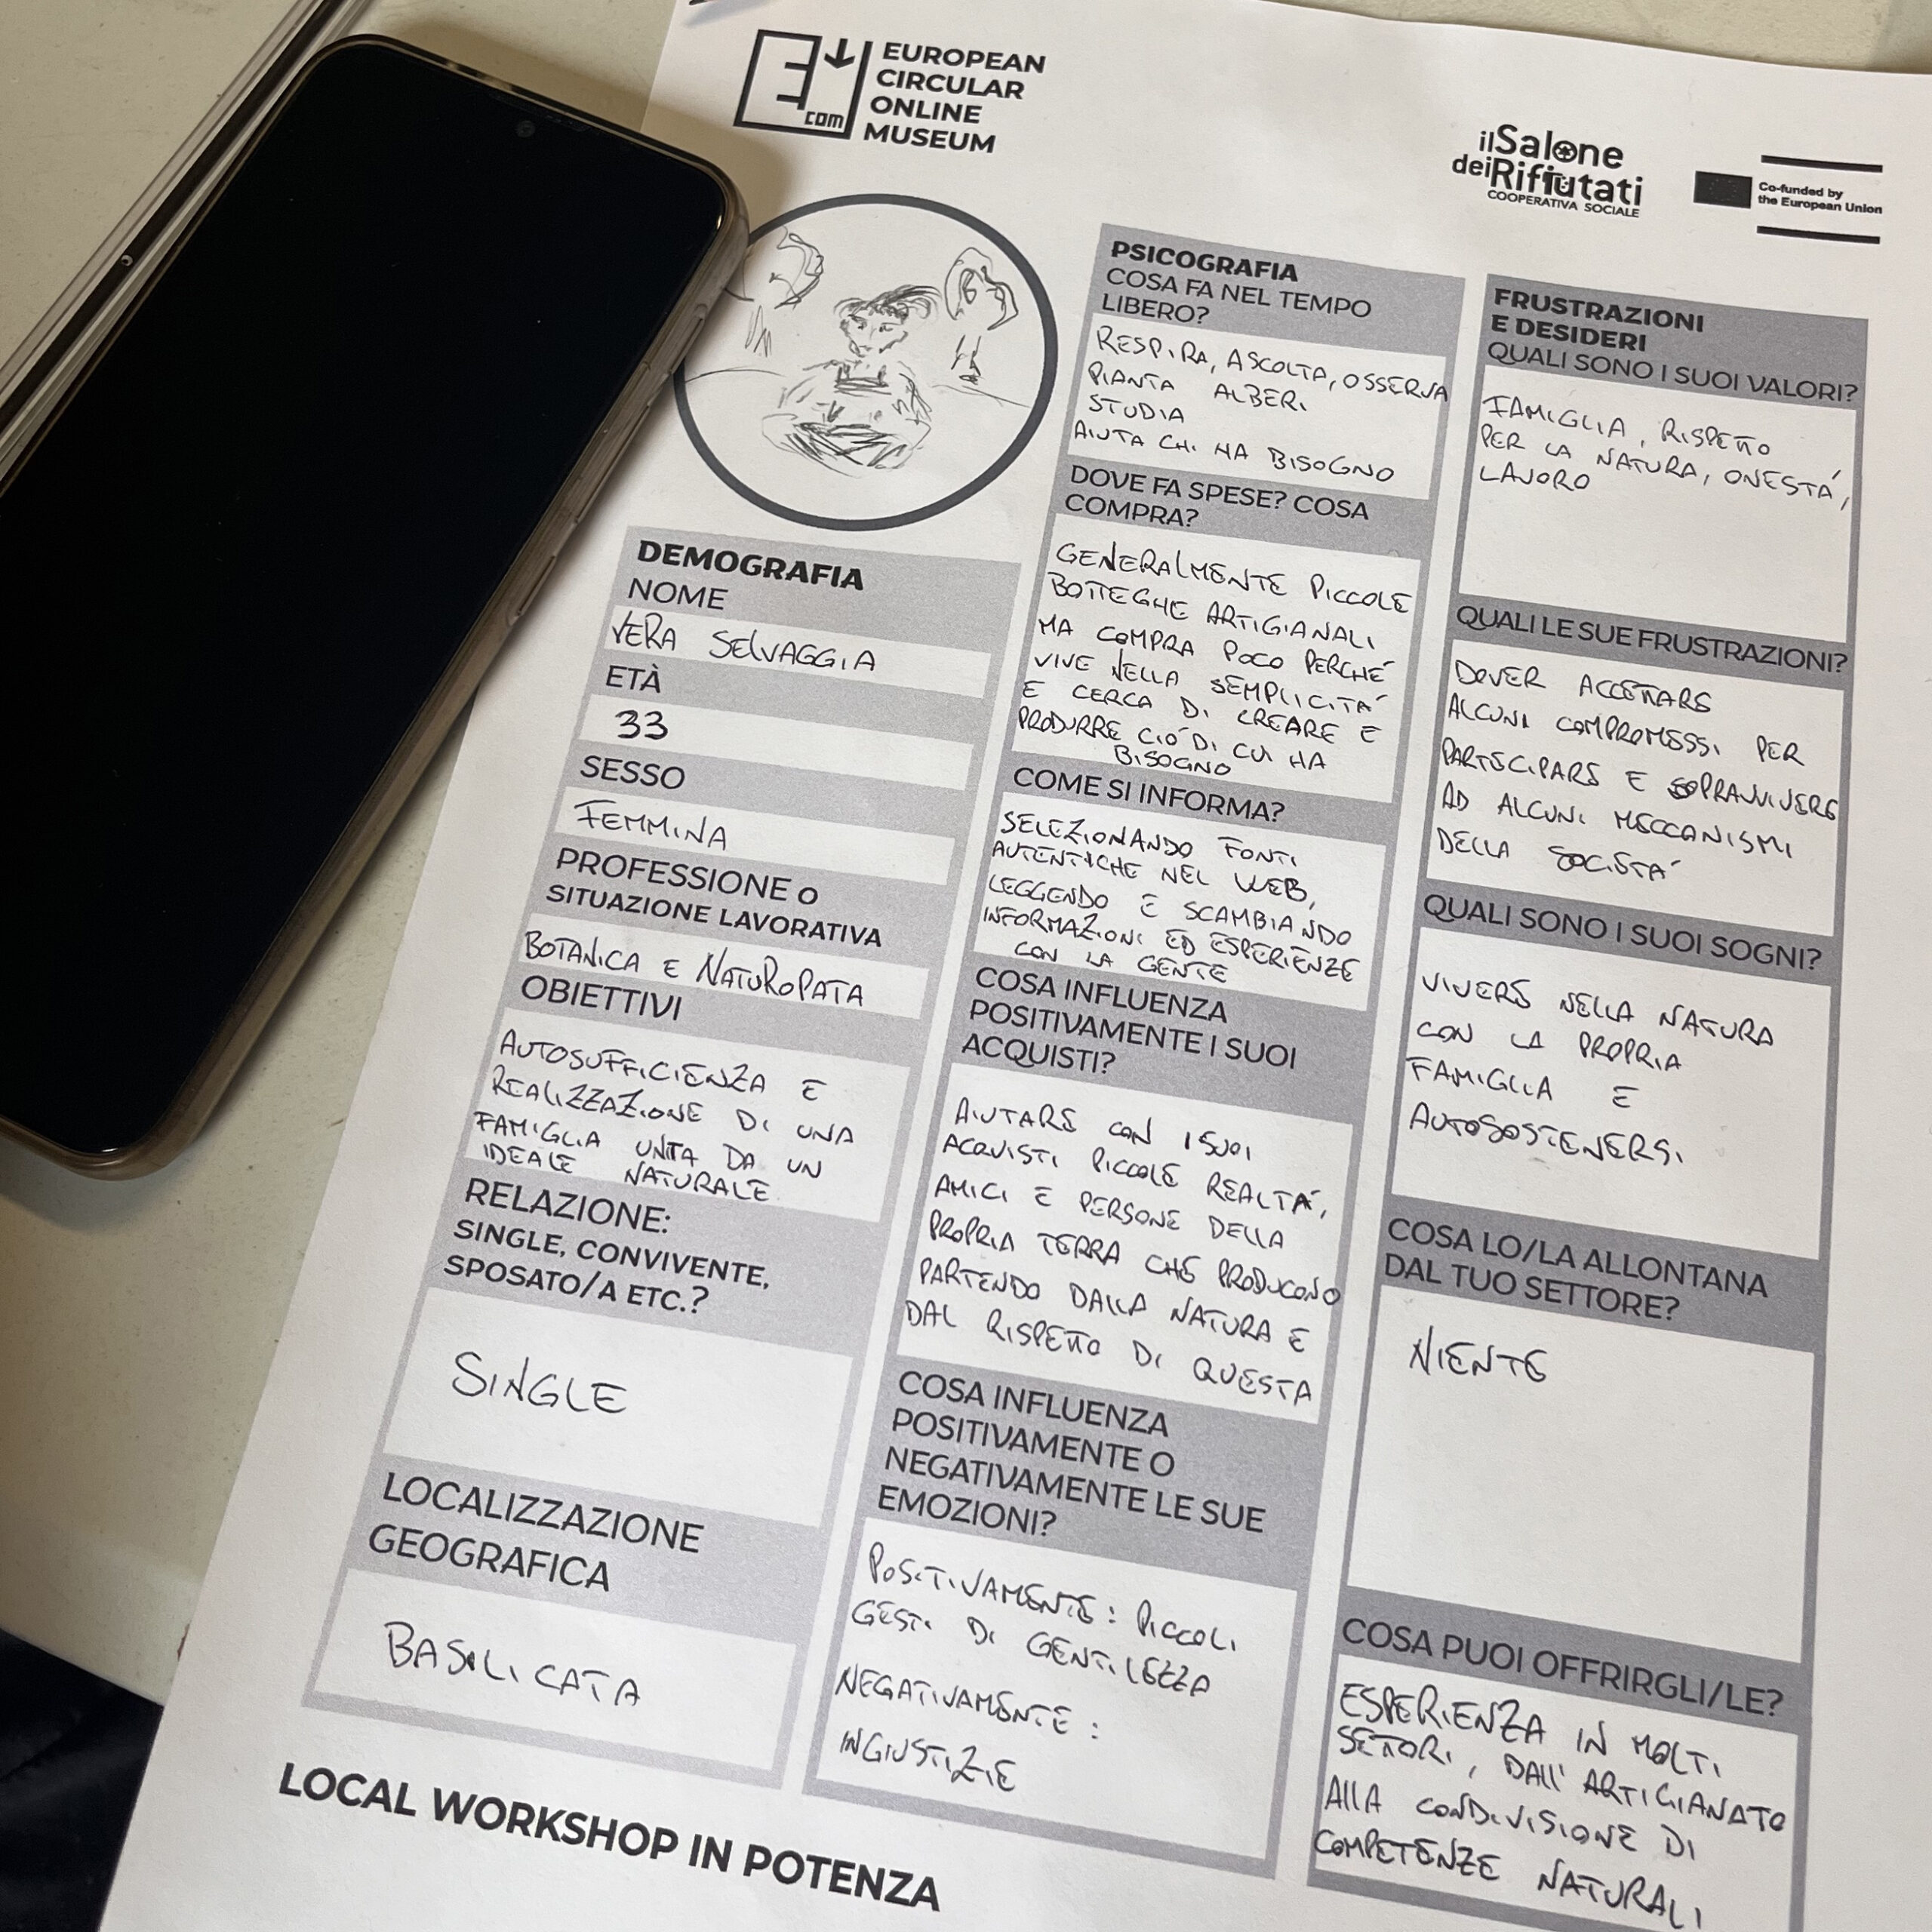 EUROPEAN
CIRCULAR
ONLINE
MUSEUM
E
com
il Salone
dei Rifiutati
COOPERATIVA SOCIALE
Co-funded by
the European Union
DEMOGRAFIA
NOME
VERA SELVAGGIA
ETÀ
33
SESSO
FEMMINA
PROFESSIONE O
SITUAZIONE LAVORATIVA
BOTANICA E NATUROPATA
OBIETTIVI
AUTOSUFFICIENZA E
REALIZZAZIONE DI UNA
FAMIGLIA UNITA DA UN
IDEALE NATURALE
RELAZIONE:
SINGLE, CONVIVENTE,
SPOSATO/A ETC.?
SINGLE
LOCALIZZAZIONE
GEOGRAFICA
BASILICATA
PSICOGRAFIA
COSA FA NEL TEMPO
LIBERO?
RESPIRA, ASCOLTA, OSSERVA
PIANTA ALBERI
STUDIA
AIUTA CHI HA BISOGNO
DOVE FA SPESE? COSA
COMPRA?
GENERALMENTE PICCOLE
BOTTEGHE ARTIGIANALI
MA COMPRA POCO PERCHÉ
VIVE NELLA SEMPLICITÀ
E CERCA DI CREARE E
PRODURRE CIÓ DI CUI HA
BISOGNO
COME SI INFORMA?
SELEZIONANDO FONTI
AUTENTICHE NEL WEB,
LEGGENDO E SCAMBIANDO
INFORMAZIONI ED ESPERIENZE
CON LA GENTE
COSA INFLUENZA
POSITIVAMENTE I SUOI
ACQUISTI?
AIUTARE CON I SUOI
ACQUISTI PICCOLE REALTÁ,
AMICI E PERSONE DELLA
PROPRIA TERRA CHE PRODUCONO
PARTENDO DALLA NATURA E
DAL RISPETTO DI QUESTA
COSA INFLUENZA
POSITIVAMENTE O
NEGATIVAMENTE LE SUE
EMOZIONI?
POSITIVAMENTE: PICCOLI
GESTI DI GENTILEZZA
NEGATIVAMENTE:
INGIUSTIZIE
FRUSTRAZIONI
E DESIDERI
QUALI SONO I SUOI VALORI?
FAMIGLIA, RISPETTO
PER LA NATURA, ONESTÁ,
LAVORO
QUALI LE SUE FRUSTRAZIONI?
DOVER ACCETTARE
ALCUNI COMPROMESSI PER
PARTECIPARE E SOPRAVVIVERE
AD ALCUNI MECCANISMI
DELLA SOCIETÁ
QUALI SONO I SUOI SOGNI?
VIVERE NELLA NATURA
CON LA PROPRIA
FAMIGLIA E
AUTOSOSTENERSI
COSA LO/LA ALLONTANA
DAL TUO SETTORE?
NIENTE
COSA PUOI OFFRIRGLI/LE?
ESPERIENZA IN MOLTI
SETTORI, DALL'ARTIGIANATO
ALLA CONDIVISIONE DI
COMPETENZE NATURALI
LOCAL WORKSHOP IN POTENZA